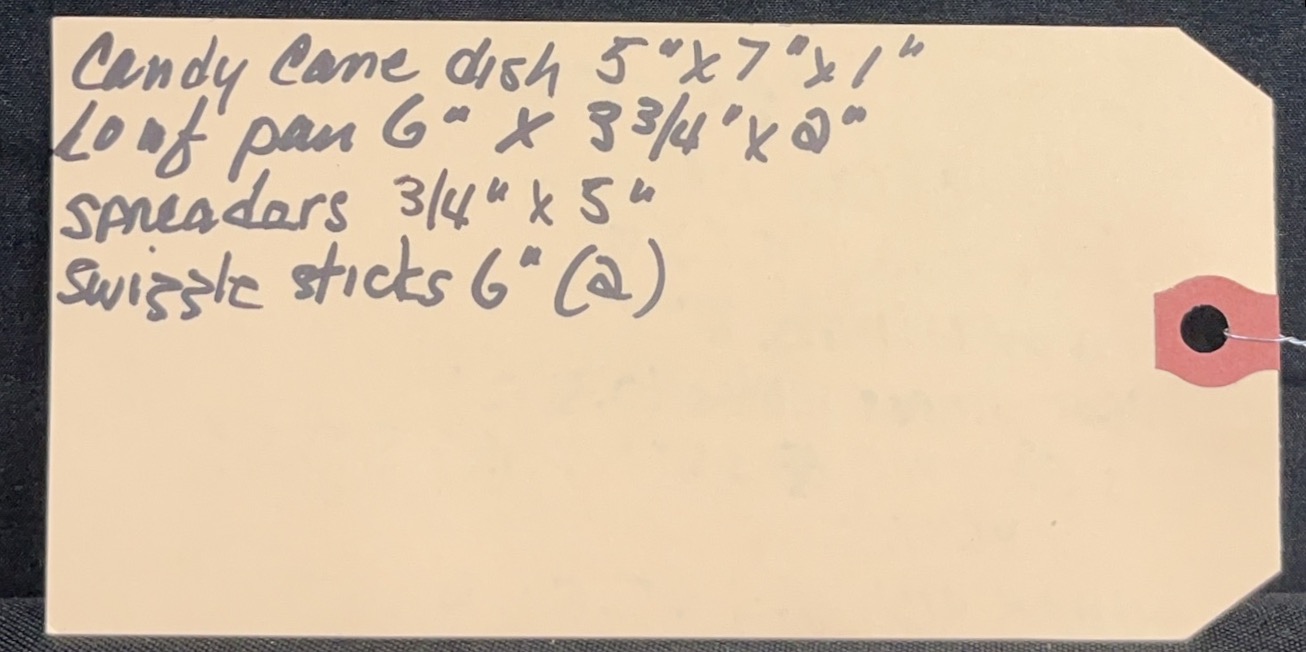 Candy Cane dish 5" x 7" x 1"
Loaf pan 6" x 3 3/4" x 2"
spreaders 3/4" x 5"
Swizzle sticks 6" (2)